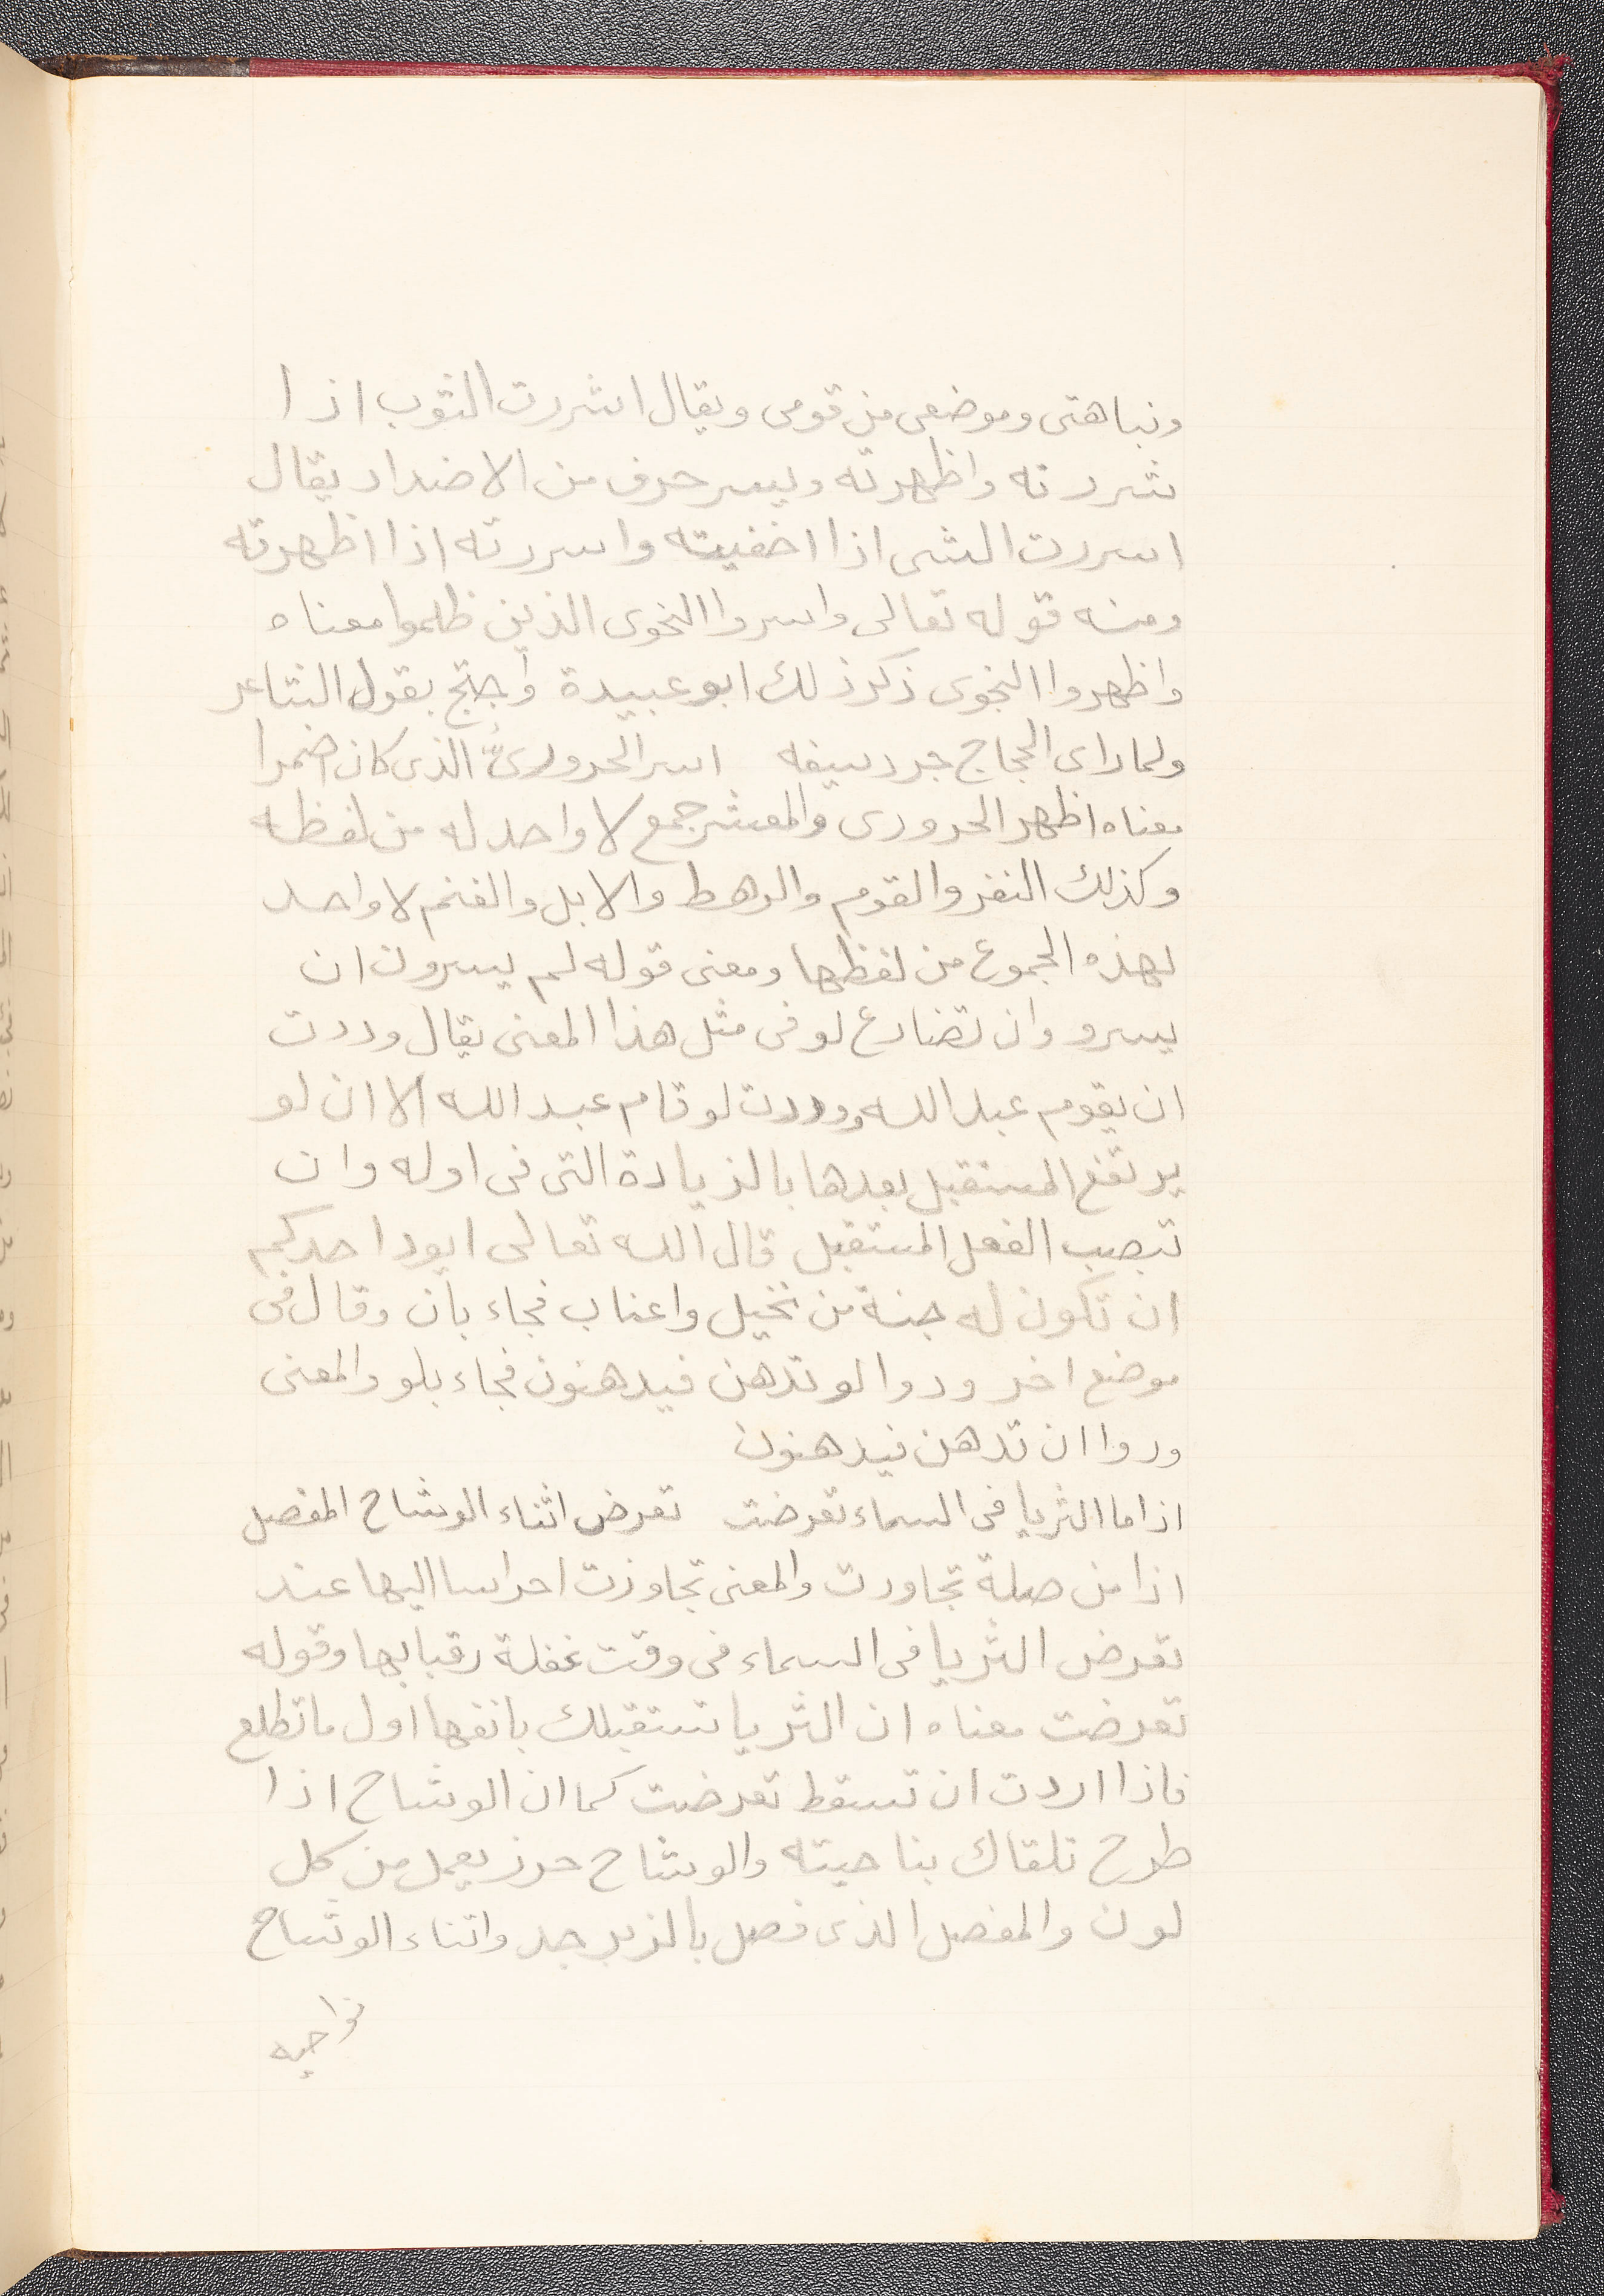 ونباهتى وموضعى من قومى ويقال اشررت الثوب اذا
شررته واظهرته ويسر حرف من الاضداد يقال
اسررت الشى اذا اخفيته واسررته اذا اظهرته
ومنه قوله تعالى واسروا النجوى الذين ظلموا معناه
واظهروا النجوى ذكر ذلك ابو عبيدة واحتج بقول الشاعر
ولما راى الحجاج جرد سيفه اسر الحرورىُّ الذى كان اضمرا
معناه اظهر الحرورى والمعشر جمع لا واحد له من لفظه
وكذلك النفر والقوم والرهط والابل والغنم لا واحد
لهذه الجموع من لفظها ومعنى قوله لم يسرون ان
يسرو وان تضارع لو فى مثل هذا المعنى يقال وددت
ان يقوم عبد الله ووددت لو قام عبد الله الا ان لو
يرتفع المستقبل بعدها بالزيادة التى فى اوله وان
تنصب الفعل المستقبل قال الله تعالى ايود احدكم
ان تكون له جنة من نخيل واعناب فجاء بان وقال فى
موضع اخر ودوا لو تدهن فيدهنون فجاء بلو والمعنى
ودوا ان تدهن فيدهنون
اذا ما الثريا فى السماء تعرضت تعرض اثناء الوشاح المفصل
اذا من صلة تجاوزت والمعنى تجاوزت احراسا اليها عند
تعرض الثريا فى السماء فى وقت غفلة رقبايها وقوله
تعرضت معناه ان الثريا تستقبلك بانفها اول ما تطلع
فاذا اردت ان تسقط تعرضت كما ان الوشاح اذا
طرح تلقاك بناحيته والوشاح حرز يعمل من كل
لون والمفصل الذى فصل بالزبرجد واثناء الوشاح
نواحيه